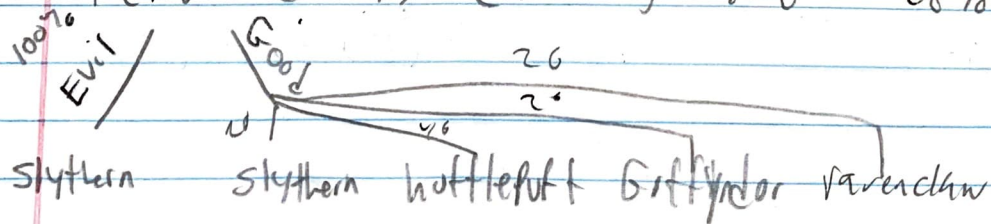 100% Evil Good
26
2
46
Slythern Slythern huffleputt Griffyndor ravenclaw